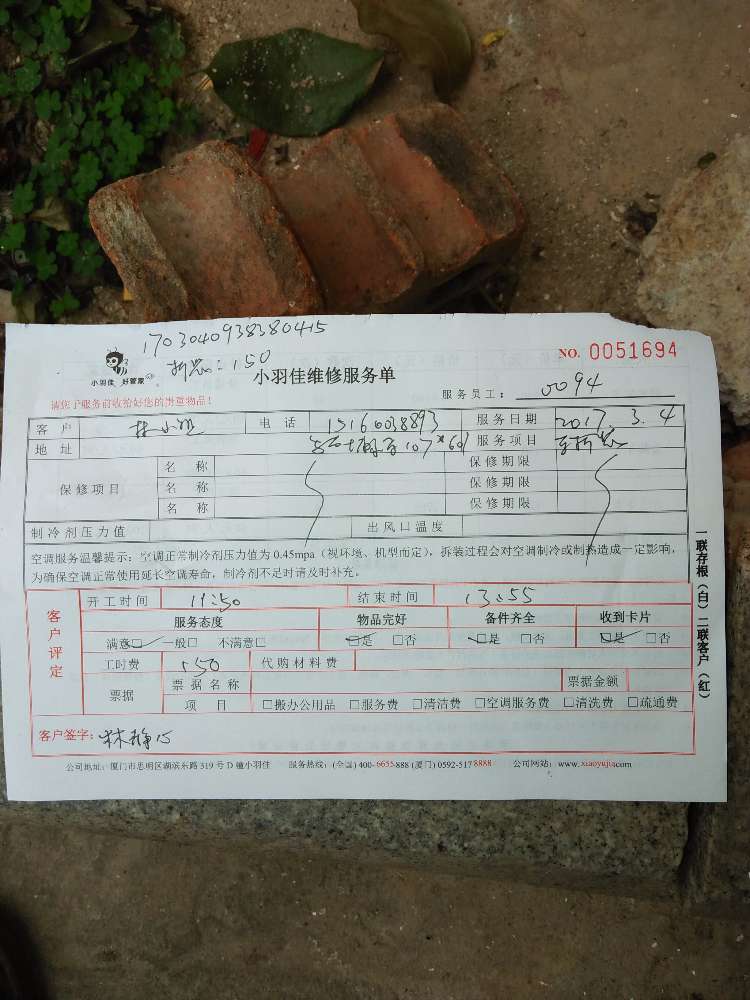 1703040938380415
拆装：150
小羽佳 好管家
NO. 0051694
小羽佳维修服务单
服务员工： 0094
请您于服务前收拾好您的贵重物品！
客户 林小姐 电话 15160038893 服务日期 2017.3.4
地址 107 服务项目
保修项目 名称 保修期限
名称 保修期限
名称 保修期限
制冷剂压力值 出风口温度
空调服务温馨提示：空调正常制冷剂压力值为0.45mpa（视环境、机型而定），拆装过程会对空调制冷或制热造成一定影响，
为确保空调正常使用延长空调寿命，制冷剂不足时请及时补充。
客户评定
开工时间 11:50 结束时间 13:55
服务态度 物品完好 备件齐全 收到卡片
满意□ 一般□ 不满意□ □是 □否 □是 □否 □是 □否
工时费 150 代购材料费
票据 票据名称 票据金额
项目 □搬办公用品 □服务费 □清洁费 □空调服务费 □清洗费 □疏通费
客户签字：林静心
公司地址：厦门市思明区湖滨东路319号D幢小羽佳 服务热线：(全国) 400-6655-888 (厦门) 0592-5178888 公司网站：www.xiaoyujia.com
一联存根（白）二联客户（红）